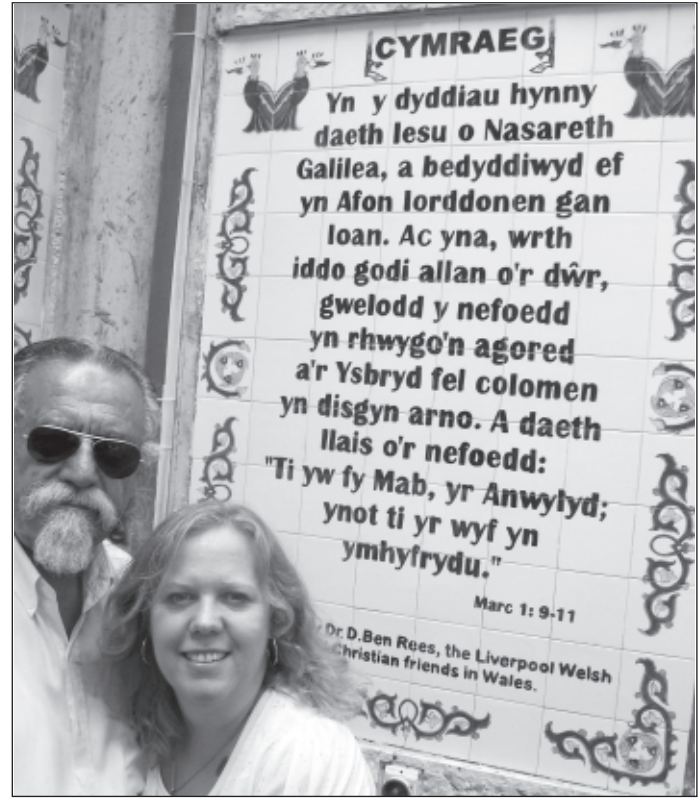 CYMRAEG
Yn y dyddiau hynny
daeth Iesu o Nasareth
Galilea, a bedyddiwyd ef
yn Afon Iorddonen gan
Ioan. Ac yna, wrth
iddo godi allan o'r dŵr,
gwelodd y nefoedd
yn rhwygo'n agored
a'r Ysbryd fel colomen
yn disgyn arno. A daeth
llais o'r nefoedd:
"Ti yw fy Mab, yr Anwylyd;
ynot ti yr wyf yn
ymhyfrydu."
Marc 1: 9-11
Dr. D.Ben Rees, the Liverpool Welsh
Christian friends in Wales.